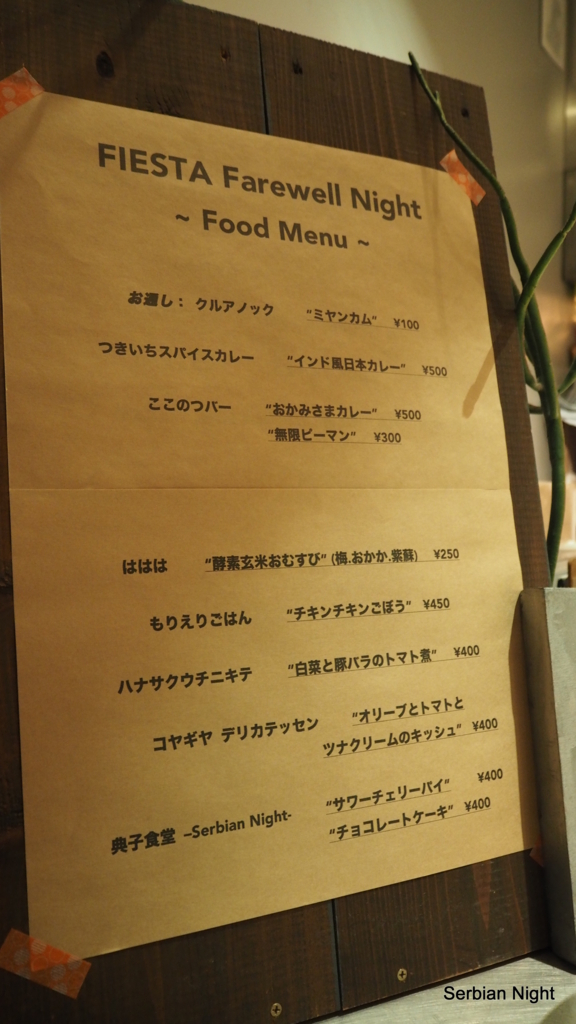 FIESTA Farewell Night
~ Food Menu ~
お通し： クルアノック "ミヤンカム" ¥100
つきいちスパイスカレー "インド風日本カレー" ¥500
ここのつバー "おかみさまカレー" ¥500
"無限ピーマン" ¥300
ははは "酵素玄米おむすび" (梅.おかか.紫蘇) ¥250
もりえりごはん "チキンチキンごぼう" ¥450
ハナサクウチニキテ "白菜と豚バラのトマト煮" ¥400
コヤギヤ デリカテッセン "オリーブとトマトと
ツナクリームのキッシュ" ¥400
"サワーチェリーパイ" ¥400
典子食堂 –Serbian Night- "チョコレートケーキ" ¥400
Serbian Night